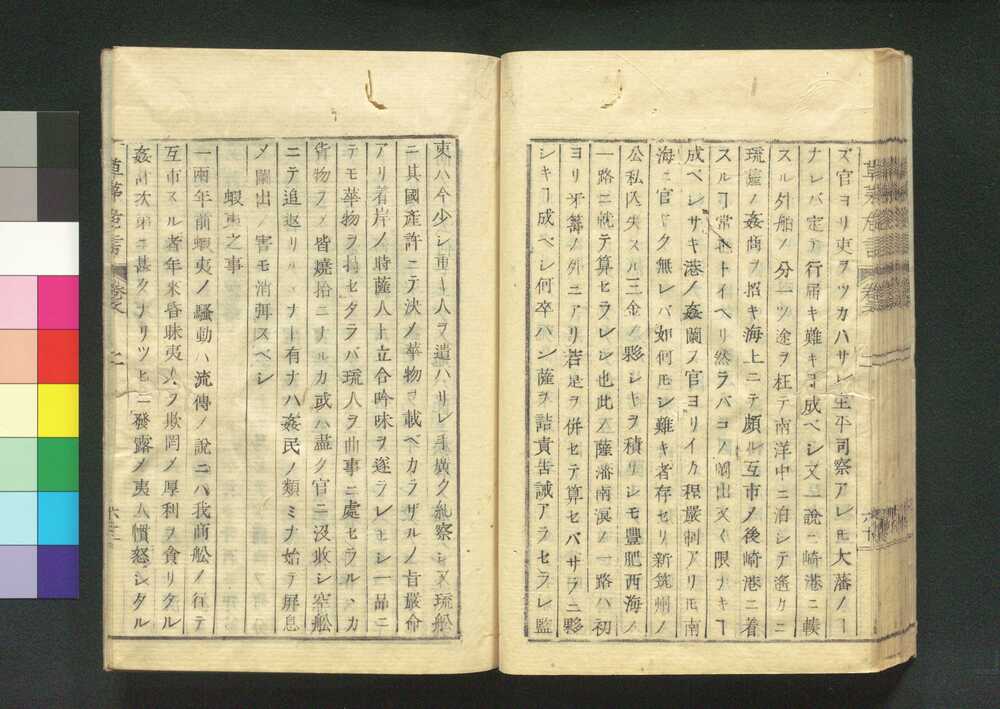 ズ官ヨリ吏ヲツカハサレ生平司察アレ𪜈大藩ノ𬼀
ナレバ定テ行届キ難キヿ成ベシ又一說ニ崎港ニ輳
スル外舶ノ分一ツ途ヲ枉テ南洋中ニ泊シテ遙カニ
琉薩ノ姦商ヲ招キ海上ニテ頗ル互市乄後崎港ニ着
スルヿ常ナリトイヘリ然ラバコノ闌出又限ナキヿ
成ベシサキ港ノ姦闌ヲ官ヨリイカ程嚴制アリ𪜈南
海ニ官ナク無レバ如何𪜈シ難キ者存セリ新筑州ノ
公私ニ失スル三金ノ夥シキヲ積リシモ豐肥西海ノ
一路ニ就テ算セラレシ也此ノ薩藩南溟ノ一路ハ初
ヨリ牙籌ノ外ニアリ若是ヲ併セテ算セバサラニ夥
シキヿ成ベシ何卒ハシ薩ヲ詰責告誡アラセラレ監
吏ハ今少シ重キ人ヲ遣ハサレ手廣ク糺察シ又琉舩
ニ其國產許ニテ決乄華物ヲ載ベカラザルノ旨嚴命
アリ着岸ノ時薩人ト立合吟味ヲ遂ラレ𪜈シ一品ニ
テモ華物ヲ持セタラバ琉人ヲ曲事ニ處セラルヽカ
貨物ヲ乄皆燒捨ニナルカ或ハ盡ク官ニ沒收シ空舩
ニテ追返サルヽナド有ナハ姦民ノ類ミナ始テ屏息
乄闌出ノ害モ消弭スベシ
蝦夷之事
一兩年前蝦夷ノ騷動ハ流傳ノ說ニハ我商舩ノ往テ
互市スル者年來昏昧夷人ヲ欺罔乄厚利ヲ貪リタル
姦計次第ニ甚クナリツヒニ發露乄夷人憤怒シタル
草茅危言